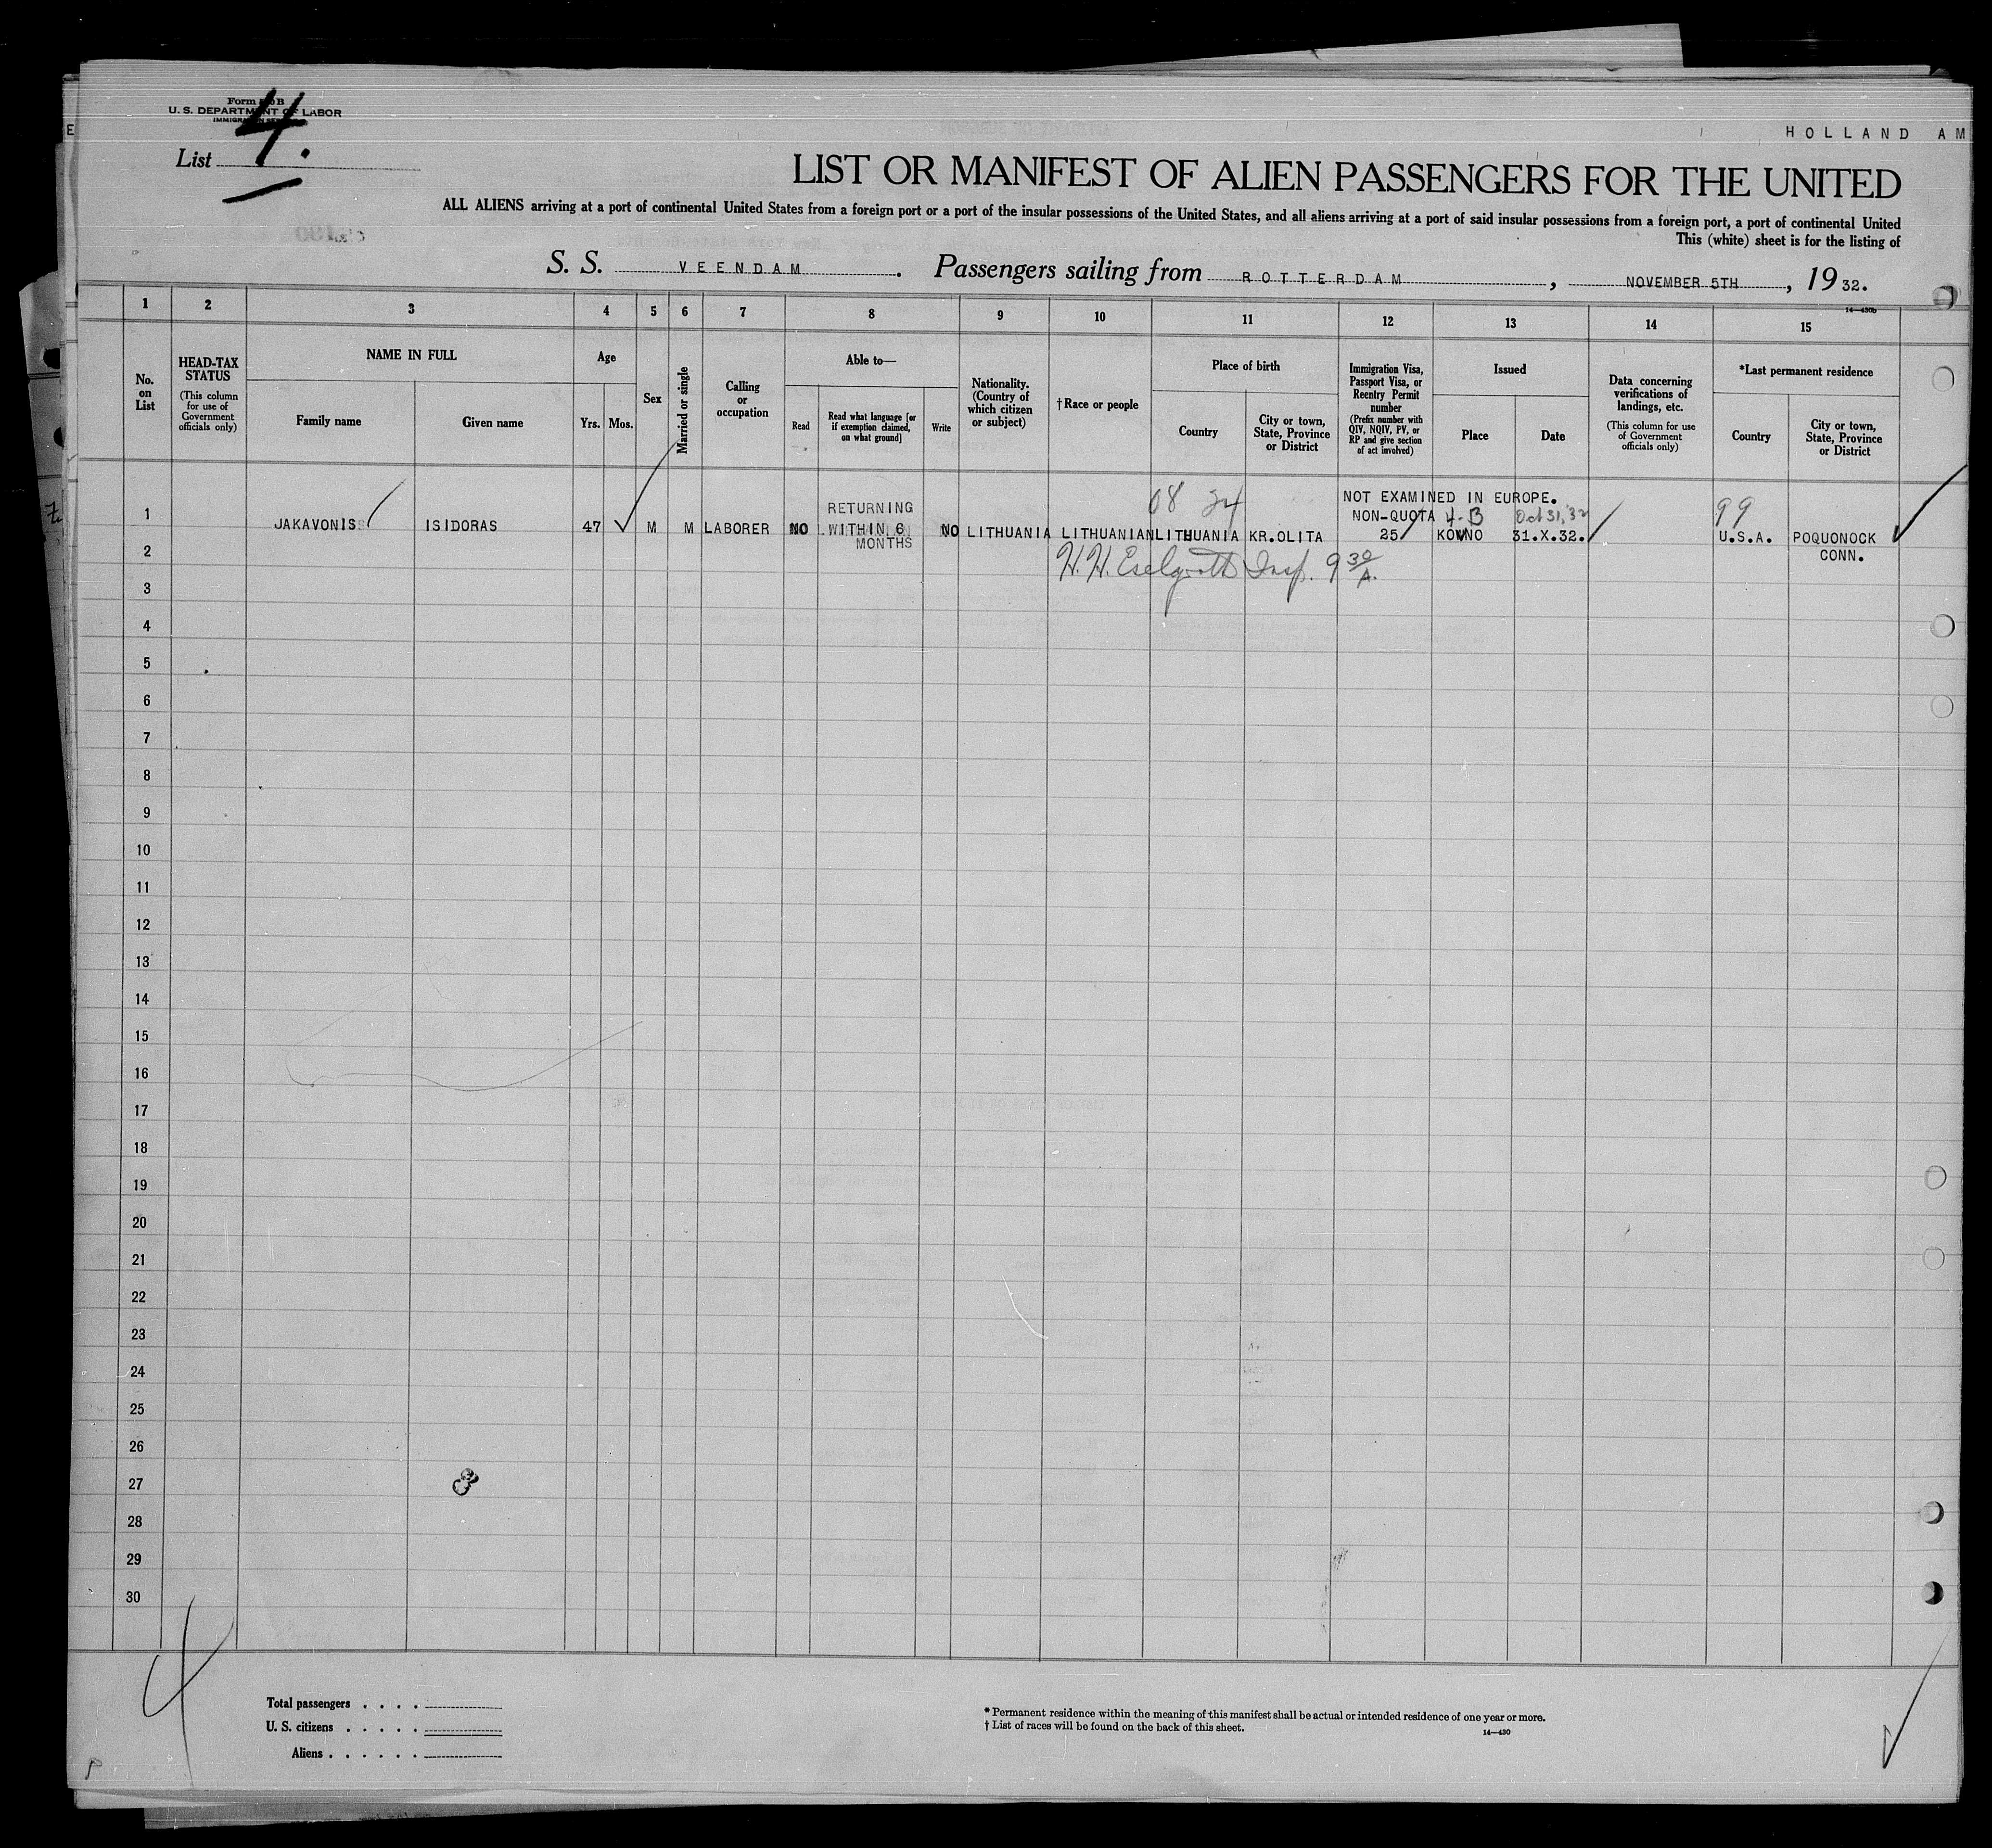 U. S. DEPARTMENT OF LABOR
HOLLAND AM
List 4.
LIST OR MANIFEST OF ALIEN PASSENGERS FOR THE UNITED
ALL ALIENS arriving at a port of continental United States from a foreign port or a port of the insular possessions of the United States, and all aliens arriving at a port of said insular possessions from a foreign port, a port of continental United
This (white) sheet is for the listing of
S. S. VEENDAM. Passengers sailing from ROTTERDAM, NOVEMBER 5TH, 1932.
14—430b
1 2 3 4 5 6 7 8 9 10 11 12 13 14 15
No. on List
HEAD-TAX STATUS (This column for use of Government officials only)
NAME IN FULL
Family name
Given name
Age
Yrs.
Mos.
Sex
Married or single
Calling or occupation
Able to—
Read
Read what language [or if exemption claimed, on what ground]
Write
Nationality. (Country of which citizen or subject)
†Race or people
Place of birth
Country
City or town, State, Province or District
Immigration Visa, Passport Visa, or Reentry Permit number (Prefix number with QIV, NQIV, PV, or RP and give section of act involved)
Issued
Place
Date
Data concerning verifications of landings, etc. (This column for use of Government officials only)
*Last permanent residence
Country
City or town, State, Province or District
08 24
NOT EXAMINED IN EUROPE.
RETURNING
NON-QUOTA 4-B Oct 31, 32
99
1 JAKAVONIS ISIDORAS 47 M M LABORER NO WITHIN 6 NO LITHUANIA LITHUANIAN LITHUANIA KR.OLITA 25 KOVNO 31.X.32. U.S.A. POQUONOCK
MONTHS
CONN.
2
H. H. Insp. 9 30 A.
3
4
5
6
7
8
9
10
11
12
13
14
15
16
17
18
19
20
21
22
23
24
25
26
27
28
29
30
4
Total passengers . . . .
U. S. citizens . . . . .
Aliens . . . . . .
* Permanent residence within the meaning of this manifest shall be actual or intended residence of one year or more.
† List of races will be found on the back of this sheet.
14—430